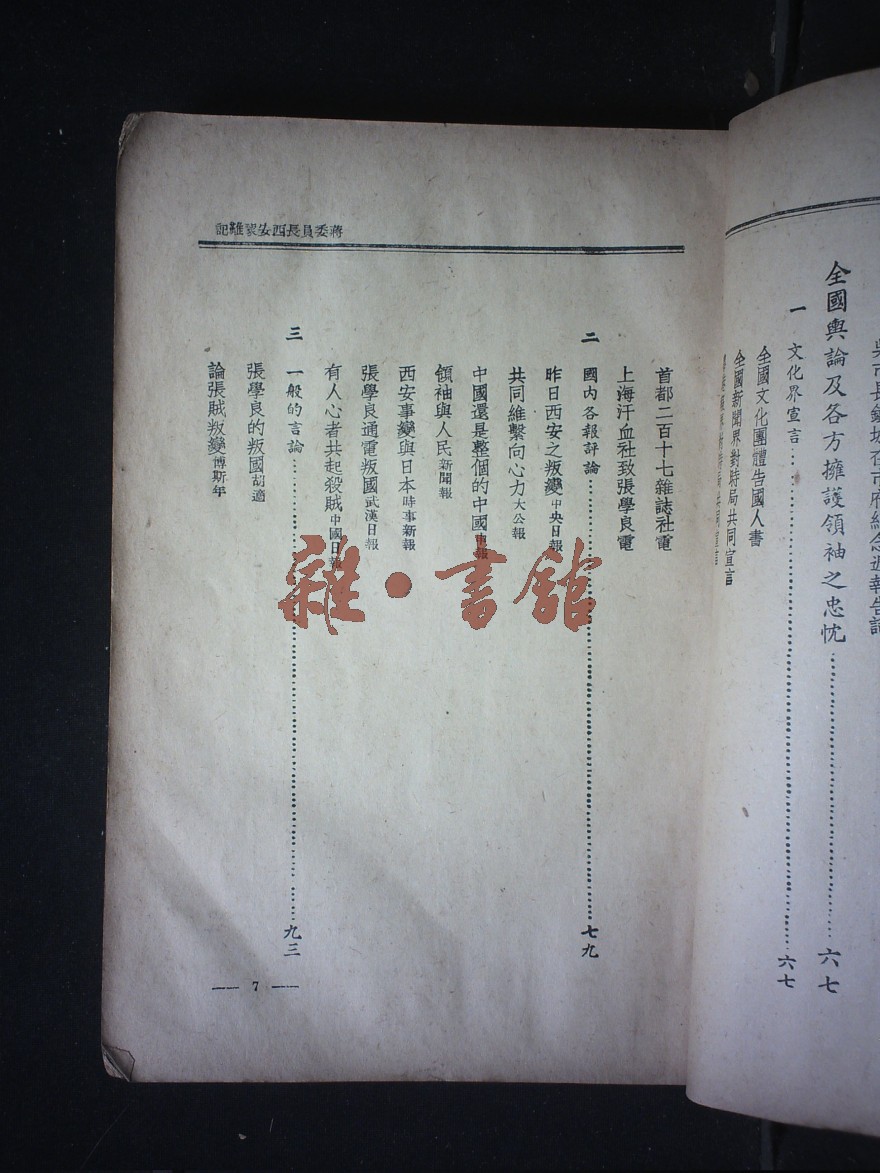 吳市長鐵城在市府紀念週報告詞
全國輿論及各方擁護領袖之忠忱……六七
一 文化界宣言……六七
全國文化團體告國人書
全國新聞界對時局共同宣言
共同宣言
蔣委員長西安蒙難記
首都二百十七雜誌社電
上海汗血社致張學良電
二 國內各報評論……七九
昨日西安之叛變 中央日報
共同維繫向心力 大公報
中國還是整個的中國 申報
領袖與人民 新聞報
西安事變與日本 時事新報
張學良通電叛國 武漢日報
有人心者共起殺賊 中國日報
三 一般的言論……九三
張學良的叛國 胡適
論張賊叛變 傅斯年
— 7 —
雜·書館